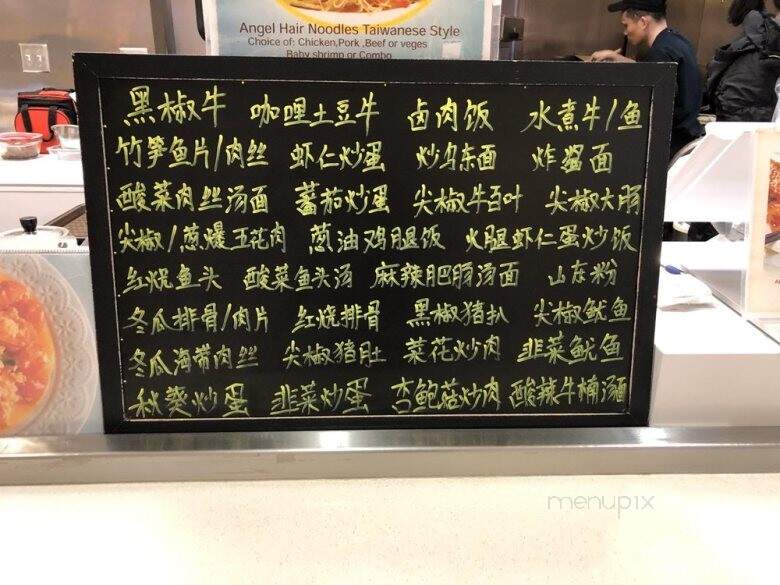 Angel Hair Noodles Taiwanese Style
Choice of: Chicken,Pork ,Beef or veges
Baby shrimp or Combo
黑椒牛 咖哩土豆牛 卤肉饭 水煮牛/鱼
竹笋鱼片/肉丝 虾仁炒蛋 炒乌东面 炸酱面
酸菜肉丝汤面 蕃茄炒蛋 尖椒牛百叶 尖椒大肠
尖椒/葱爆五花肉 葱油鸡腿饭 火腿虾仁蛋炒饭
红烧鱼头 酸菜鱼头汤 麻辣肥肠汤面 山东粉
冬瓜排骨/肉片 红烧排骨 黑椒猪扒 尖椒鱿鱼
冬瓜海带肉丝 尖椒猪肚 菜花炒肉 韭菜鱿鱼
秋葵炒蛋 韭菜炒蛋 杏鲍菇炒肉 酸辣牛腩汤面
menupix